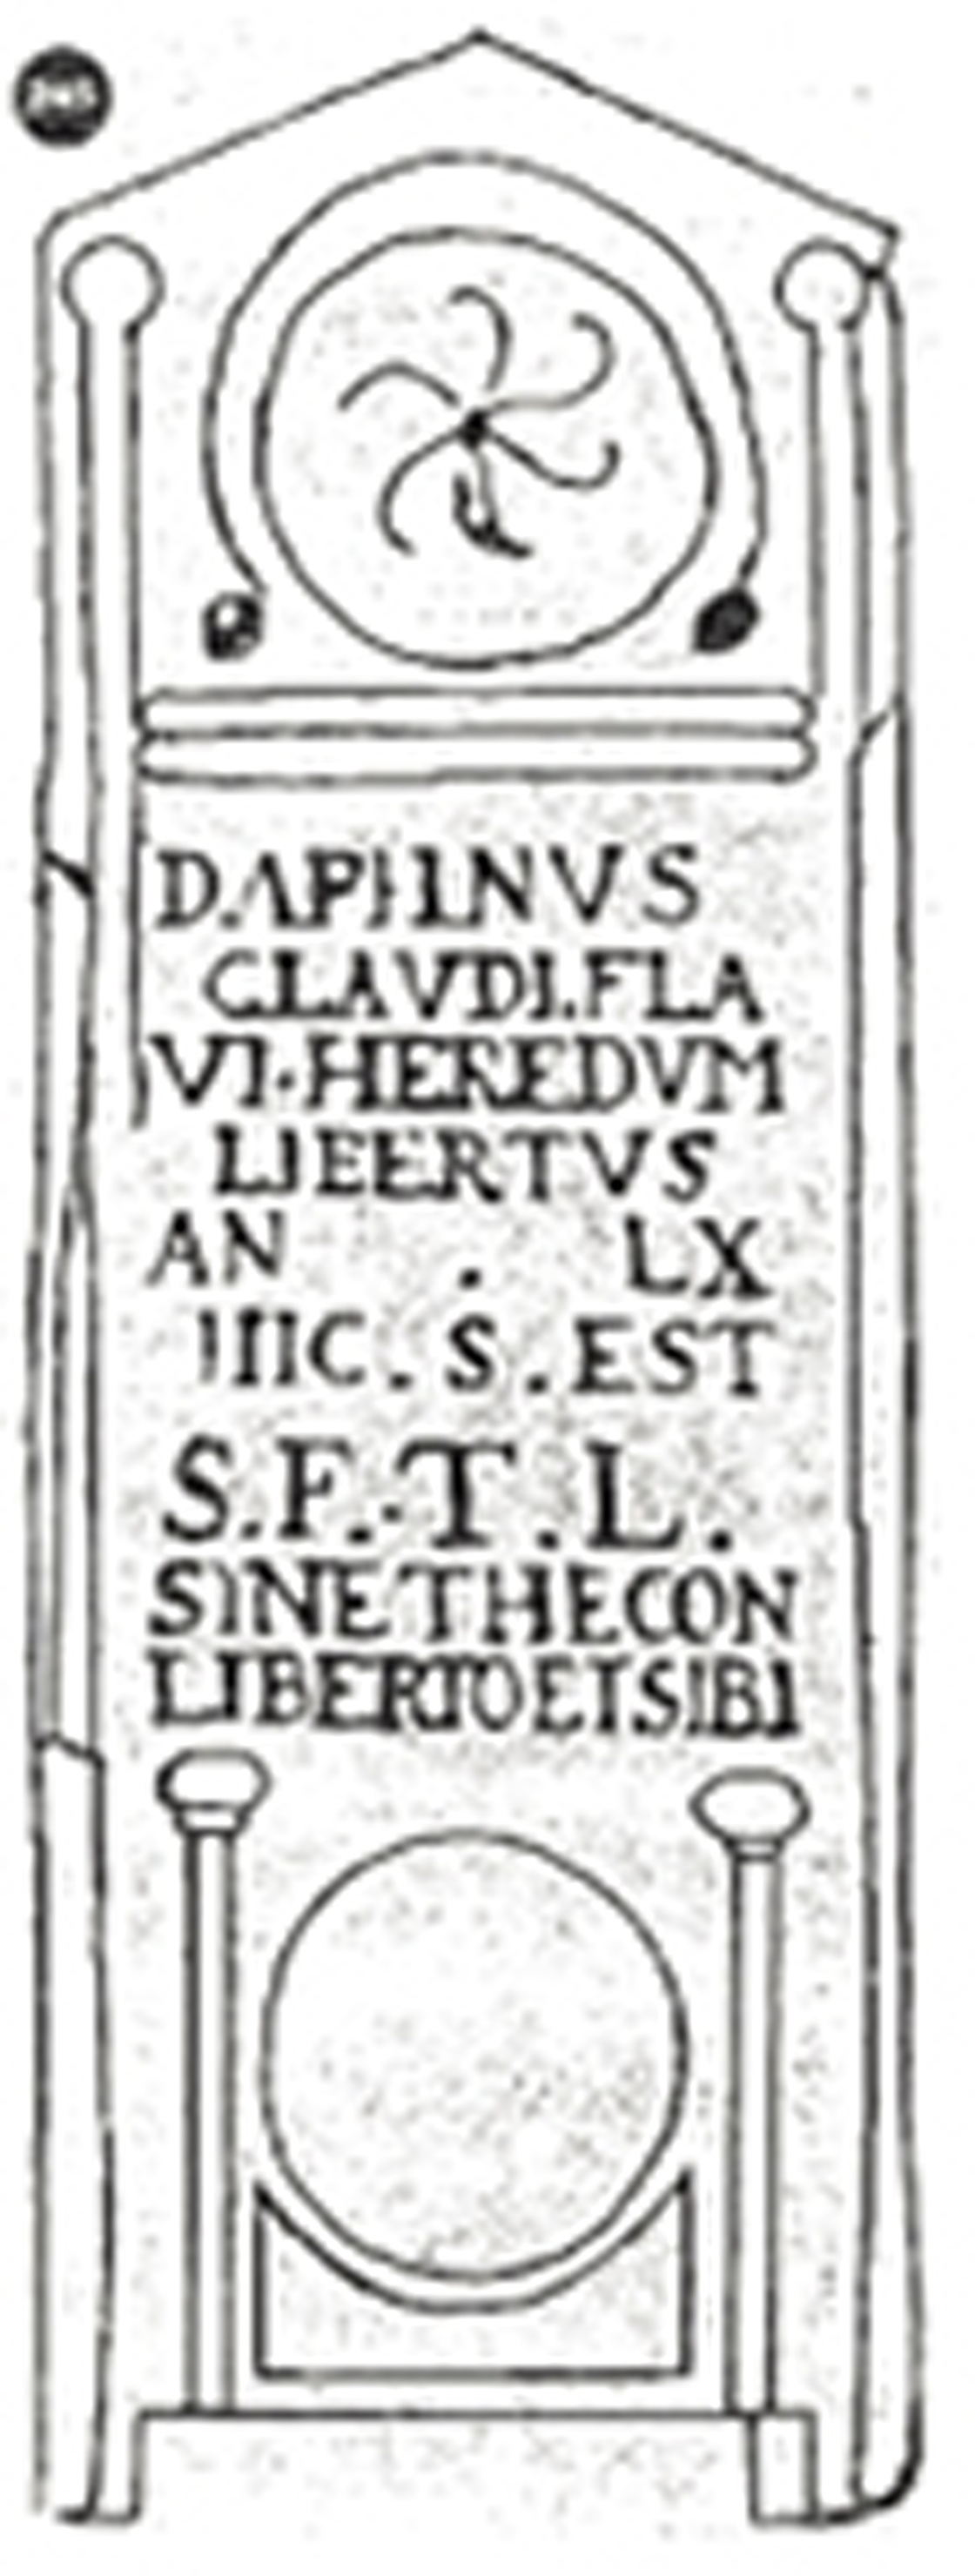 245
DAPHINVS
CLAVDI.FLA
VI·HEREDVM
LIBERTVS
AN . LX
HIC.S.EST
S.F.·T.L.
SINETHECON
LIBERTOETSIBI